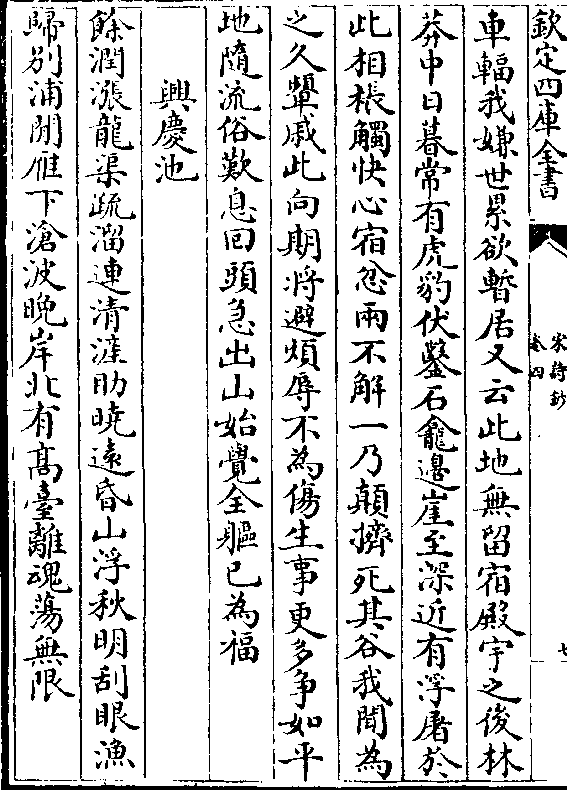 欽定四庫全書
宋詩鈔
卷四
七
車輻我嫌世累欲暫居又云此地無留宿殿宇之後林
莽中日暮常有虎豹伏鑿石龕邊崖至深近有浮屠於
此相棖觸快心宿忿兩不解一乃顛擠死其谷我聞為
之久顰戚此向期將避煩辱不為傷生事更多争如平
地隨流俗歎息回頭急出山始覺全軀已為福
興慶池
餘潤漲龍渠疏溜連清滻助曉遠昏山浮秋明刮眼漁
歸別浦閒雁下滄波晚岸北有高臺離魂蕩無限